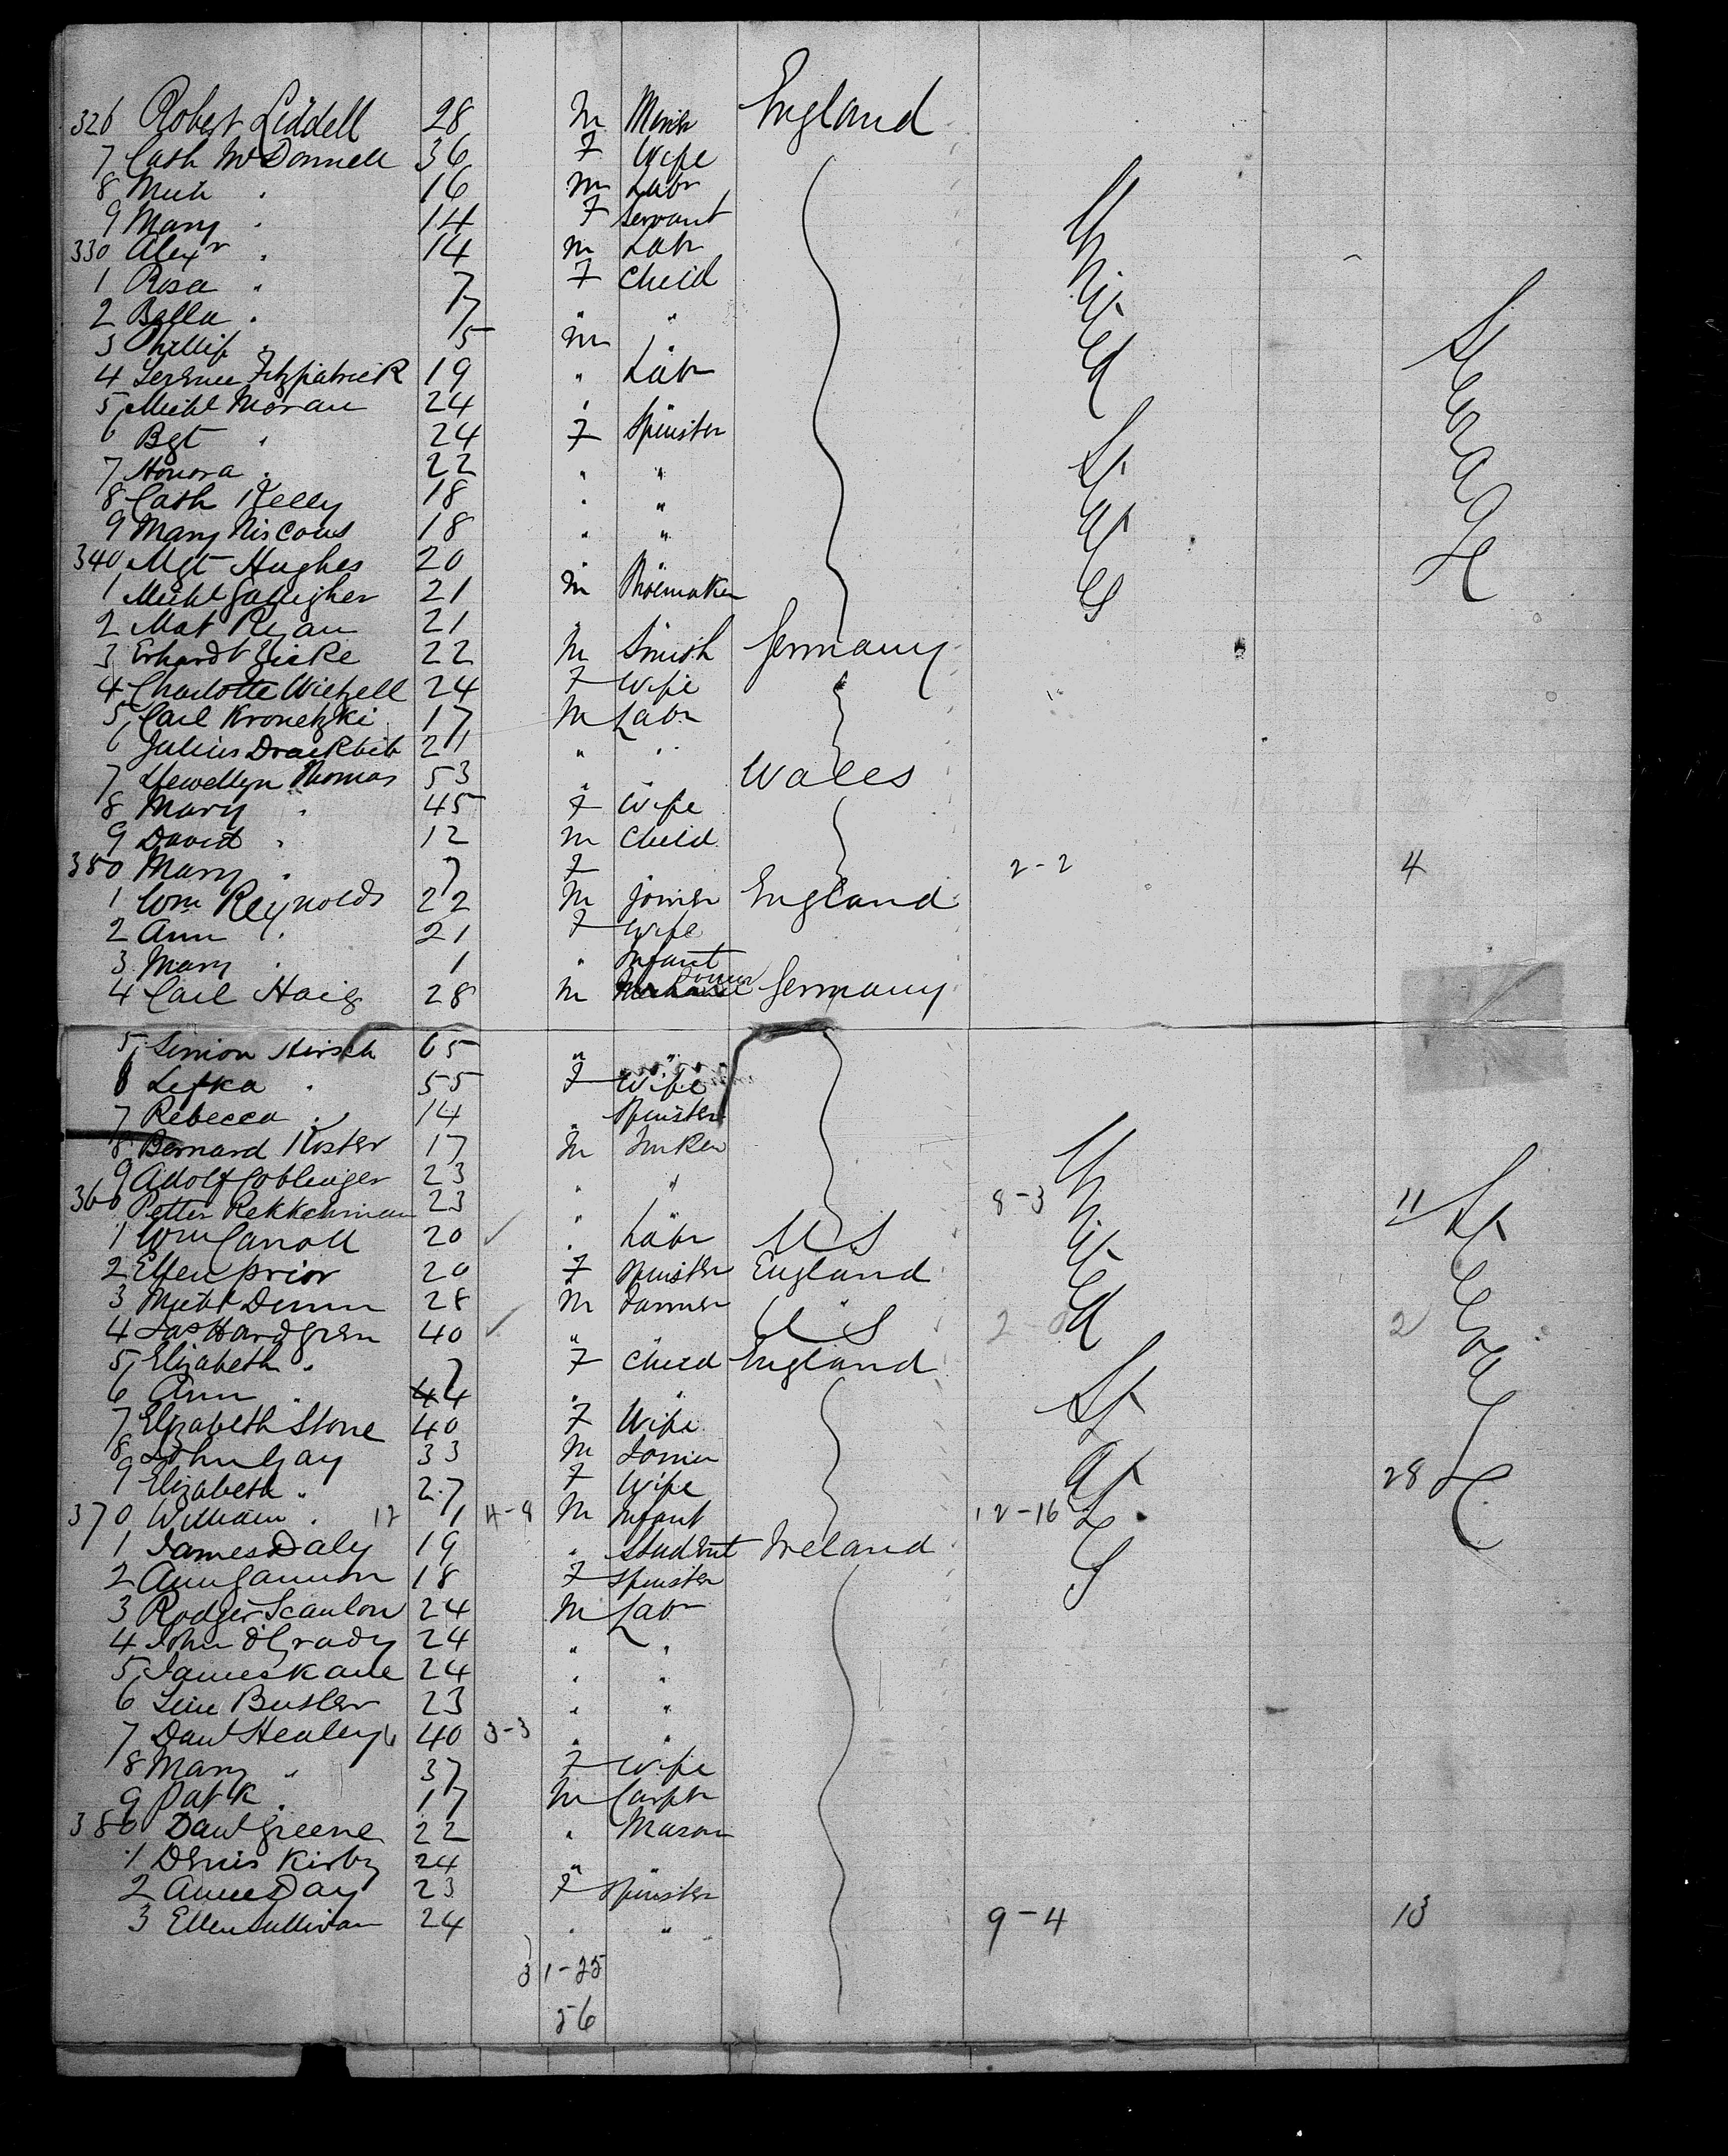 326 Robert Liddell 28 M Miner England
7 Cath McDonnell 36 F Wife
8 Mich " 16 M Labr
9 Mary " 14 F Servant
330 Alexr " 14 M Labr
1 Rosa " 7 F Child
2 Bella " 7 " "
3 Phillip " 5 M "
4 Terence Fitzpatrick 19 " Labr
5 Michl Moran 24 "
6 Bgt " 24 F Spinster
7 Honora " 22 " "
8 Cath Kelly 18 " "
9 Mary 18 " "
340 Mgt Hughes 20
1 Michl Galligher 21 M Shoemaker
2 Mat Ryan 21 "
3 Erhardt 22 M Smith Germany
4 Charlotte 24 F Wife
5 Carl Kronetzki 17 M Labr
6 Julius 21 " "
7 Llewellyn Thomas 53 " " Wales
8 Mary " 45 F Wife
9 David " 12 M Child
350 Mary " 7 F 2-2 4
1 Wm Reynolds 22 M Joiner England
2 Ann " 21 F Wife
3 Mary " 1 " Infant
4 Carl Haig 28 M Joiner Germany
5 Simon Hirsch 65 " "
6 55 F Wife
7 Rebecca " 14 " Spinster
8 Bernard Koster 17 M
9 Adolf 23 " "
360 Petter 23 " 8-3 11
1 Wm Carroll 20 " Labr U S
2 Ellen Prior 20 F Spinster England
3 Michl Dunn 28 M Farmer "
4 Jas Hardgren 40 " U S 2-0 2
5 Elizabeth " 7 F Child England
6 Ann " 4 " "
7 Elizabeth Stone 40 F Wife
8 John Gay 33 M Joiner
9 Elizabeth " 27 F Wife 28
370 William " 12 1 4-8 M Infant 12-16
1 James Daly 19 " Student Ireland
2 Ann Gannon 18 F Spinster
3 Rodger Scanlon 24 M Labr
4 John O'Grady 24 " "
5 James Kane 24 " "
6 Butler 23 " "
7 Danl Healey 40 3-3 " "
8 Mary " 37 F Wife
9 Patk " 17 M Carptr
380 Danl Greene 22 " Mason
1 Denis Kirby 24 " "
2 Annie Day 23 F Spinster
3 Ellen Sullivan 24 " " 9-4 13
3 1-25
56